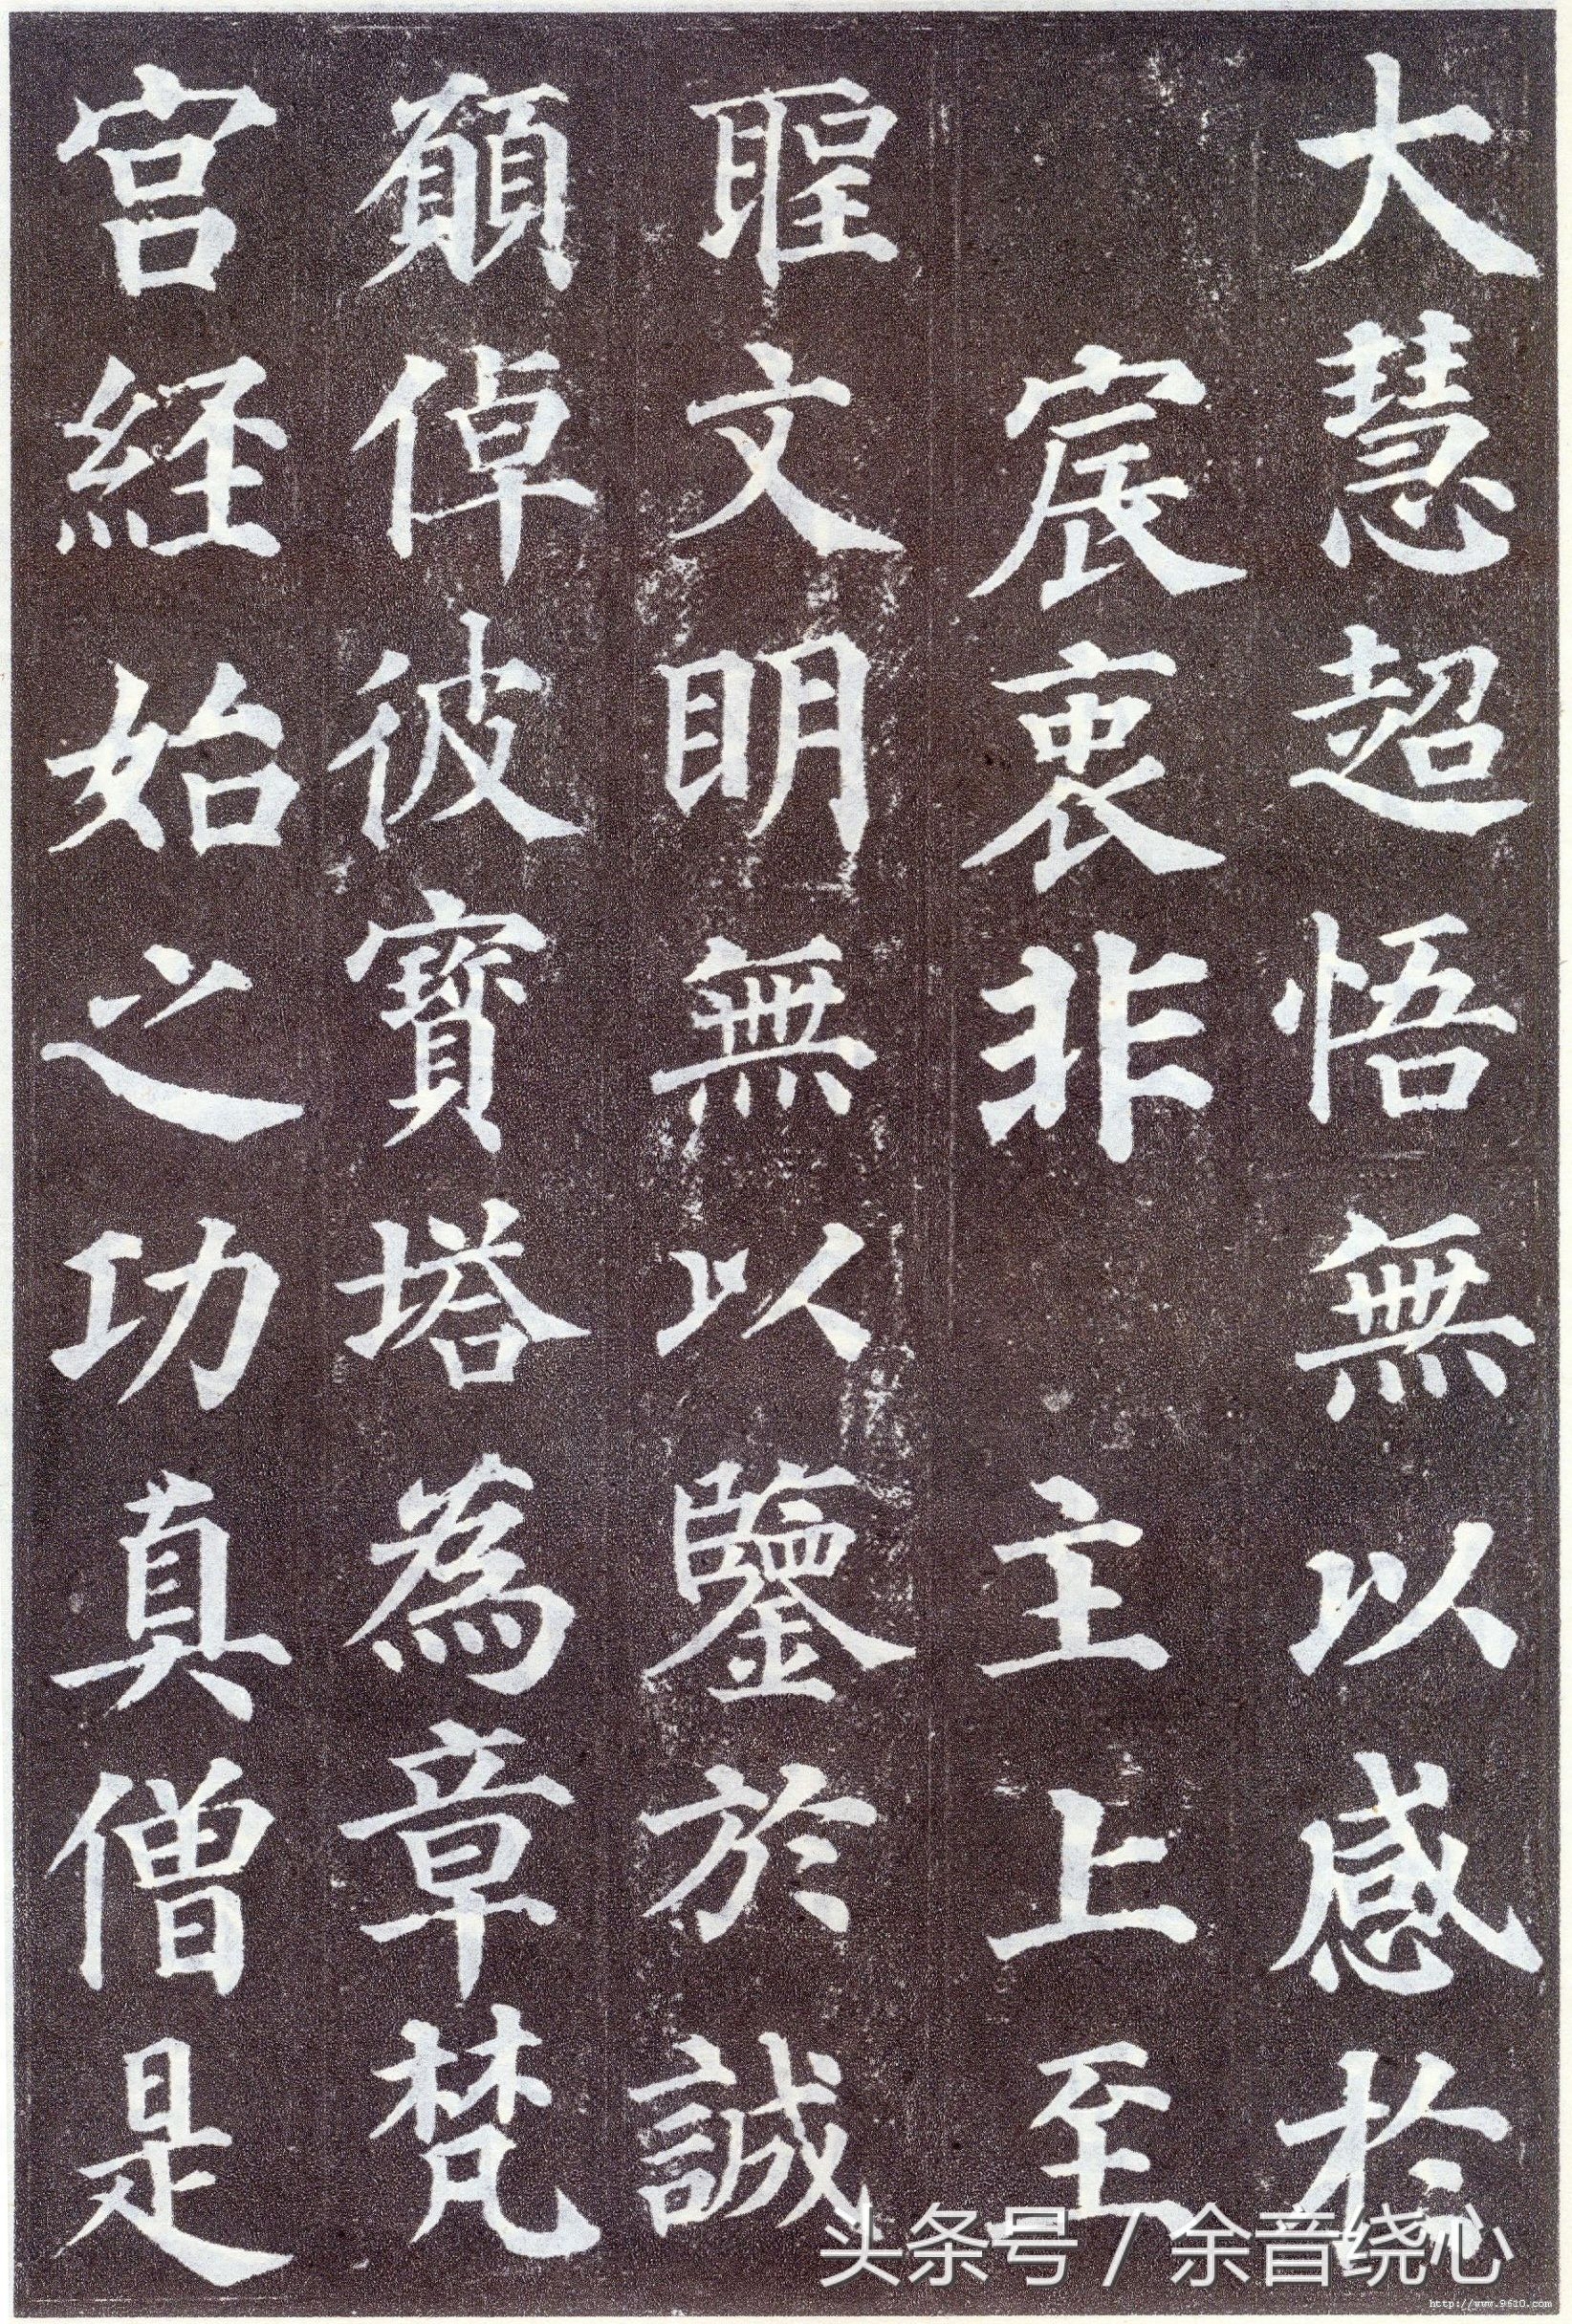 大慧超悟無以感於
宸衷非 主上至
聖文明無以鑒於誠
願倬彼寶塔為章梵
宫經始之功真僧是
头条号 / 余音绕心
http://www.9610.com